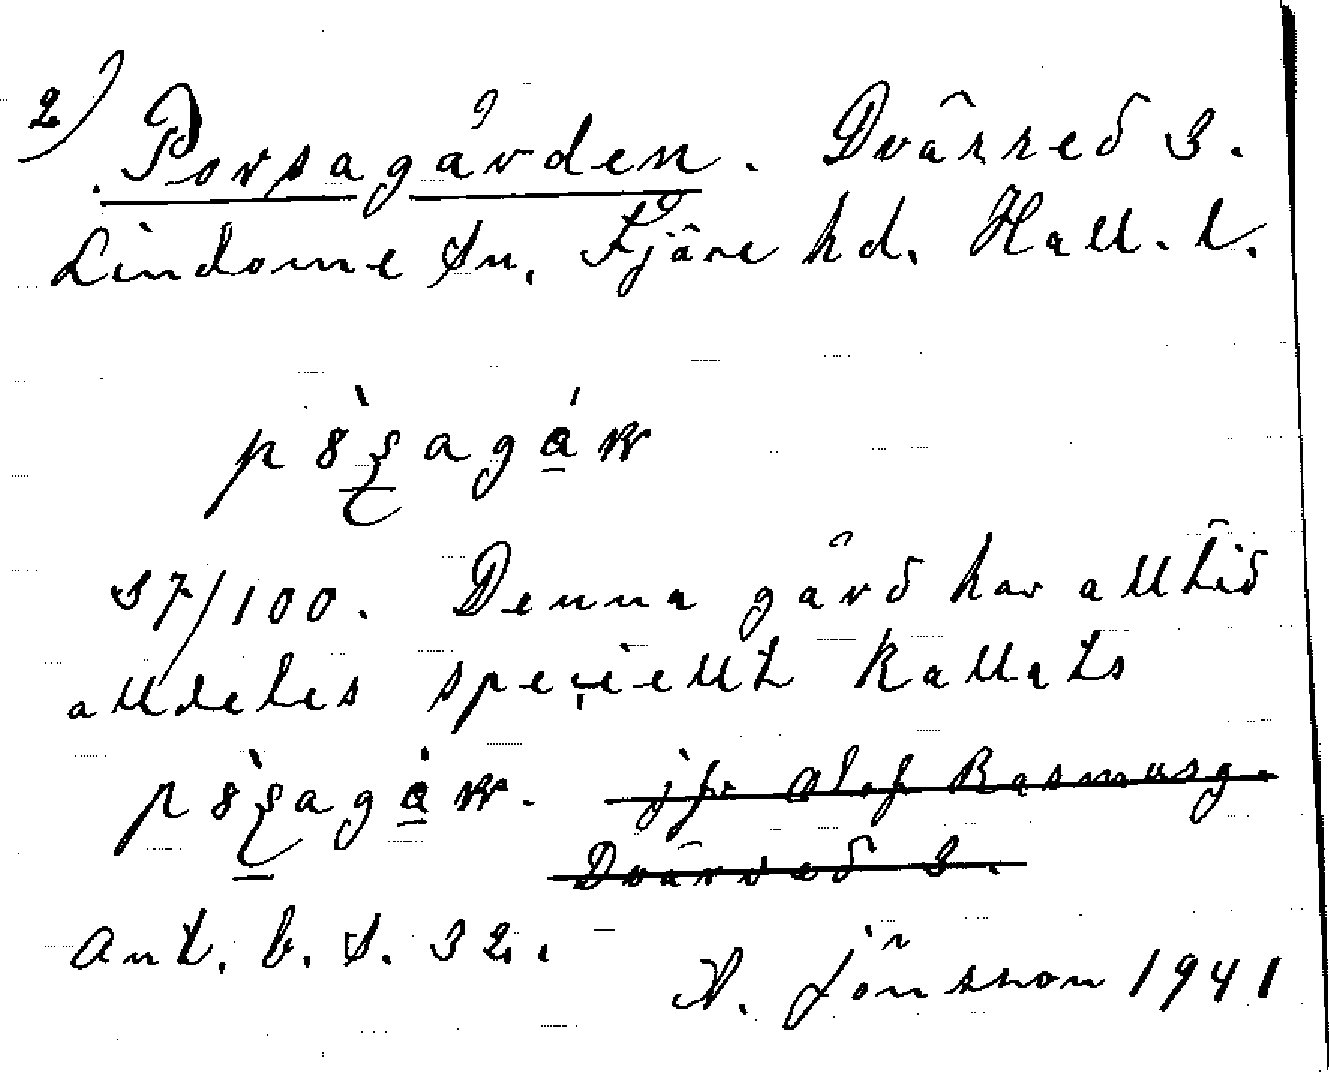 2) Porsagården. Dvärred 3.
Lindome sn. Fjäre hd. Hall. l.
37/100. Denna gård har alltid
alldeles speciellt kallats
jfr Olof Rasmusg.
Dvärred 3.
Ant. b. s. 32.
A. Jönsson 1941